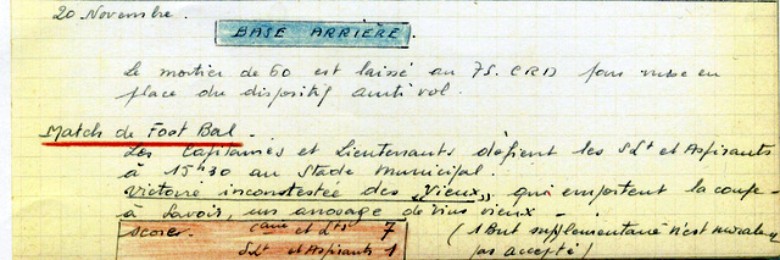 20 Novembre.
BASE ARRIÈRE.
Le mortier de 60 est laissé au 7S. CRD pour mise en
place du dispositif anti vol.
Match de Foot Bal.
Les Capitaines et Lieutenants défient les SLt et Aspirants
à 15h30 au Stade Municipal.
Victoire incontestée des "Vieux" qui emportent la coupe
à Savoir, un arrosage de vins vieux -
Scorer. Caine et Lts 7 (1 But supplémentaire n'est
SLt et Aspirants 1 pas accepté)